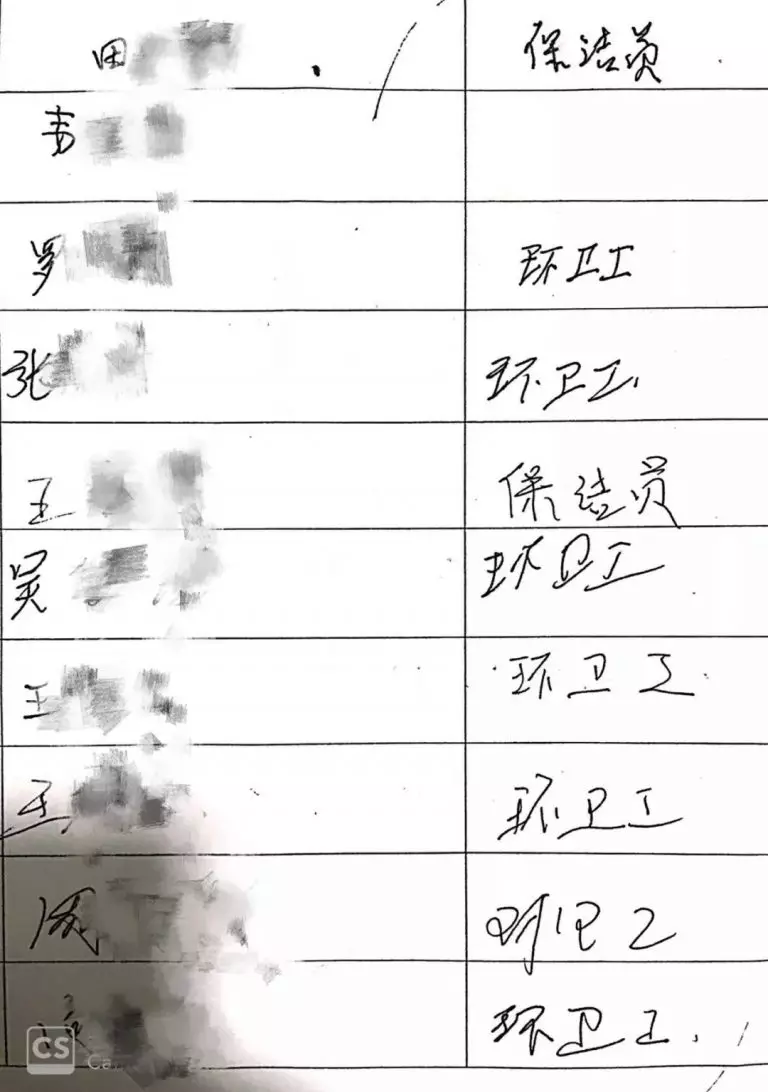 田 保洁员
韦
罗 环卫工
张 环卫工
王 保洁员
吴 环卫工
王 环卫工
王 环卫工
周 环卫工
环卫工
CS